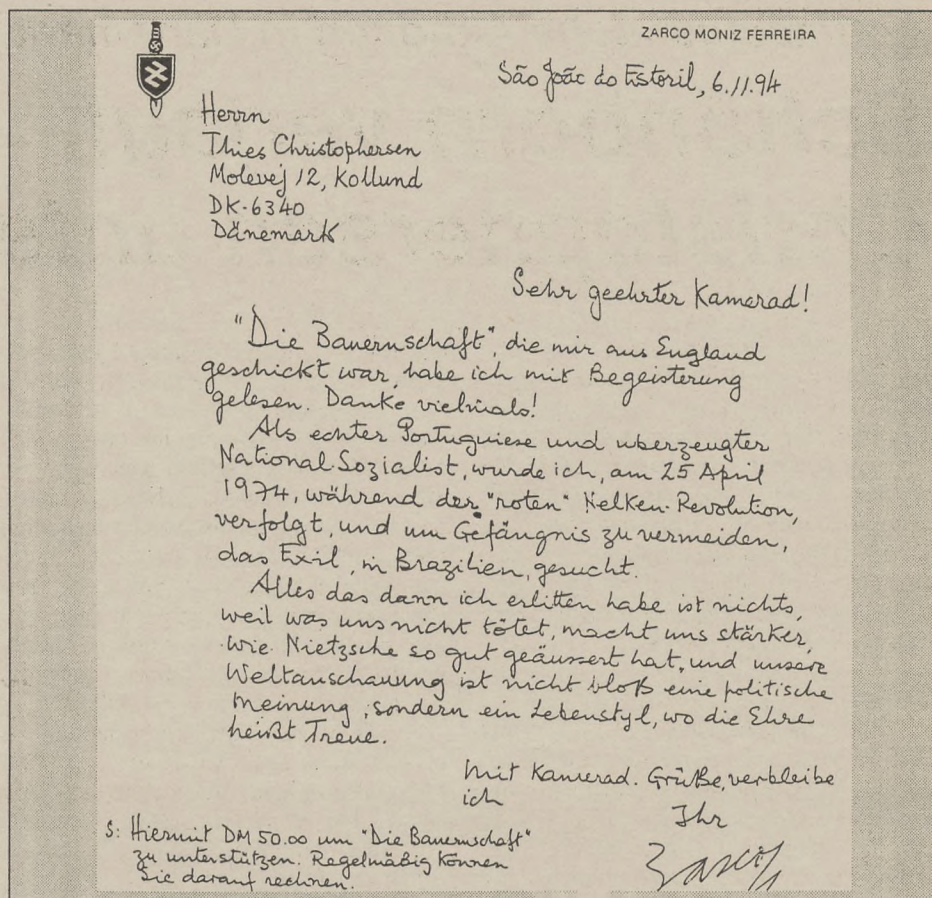 ZARCO MONIZ FERREIRA
São João do Estoril, 6.11.94
Herrn
Thies Christophersen
Molevej 12, Kollund
DK-6340
Dänemark
Sehr geehrter Kamerad!
"Die Bauernschaft", die mir aus England
geschickt war, habe ich mit Begeisterung
gelesen. Danke vielmals!
Als echter Portuguiese und uberzeugter
National-Sozialist, wurde ich, am 25 April
1974, während der "roten" Nelken-Revolution,
verfolgt, und um Gefängnis zu vermeiden,
das Exil, in Brazilien, gesucht.
Alles das dann ich erlitten habe ist nichts,
weil was uns nicht tötet, macht uns stärker,
wie Nietzsche so gut geäussert hat, und unsere
Weltanschauung ist nicht bloß eine politische
Meinung, sondern ein Lebenstyl, wo die Ehre
heißt Treue.
Mit Kamerad. Grüße, verbleibe
ich
Ihr
Zarco
S: Hiermit DM 50.00 um "Die Bauernschaft"
zu unterstützen. Regelmäßig können
Sie darauf rechnen.